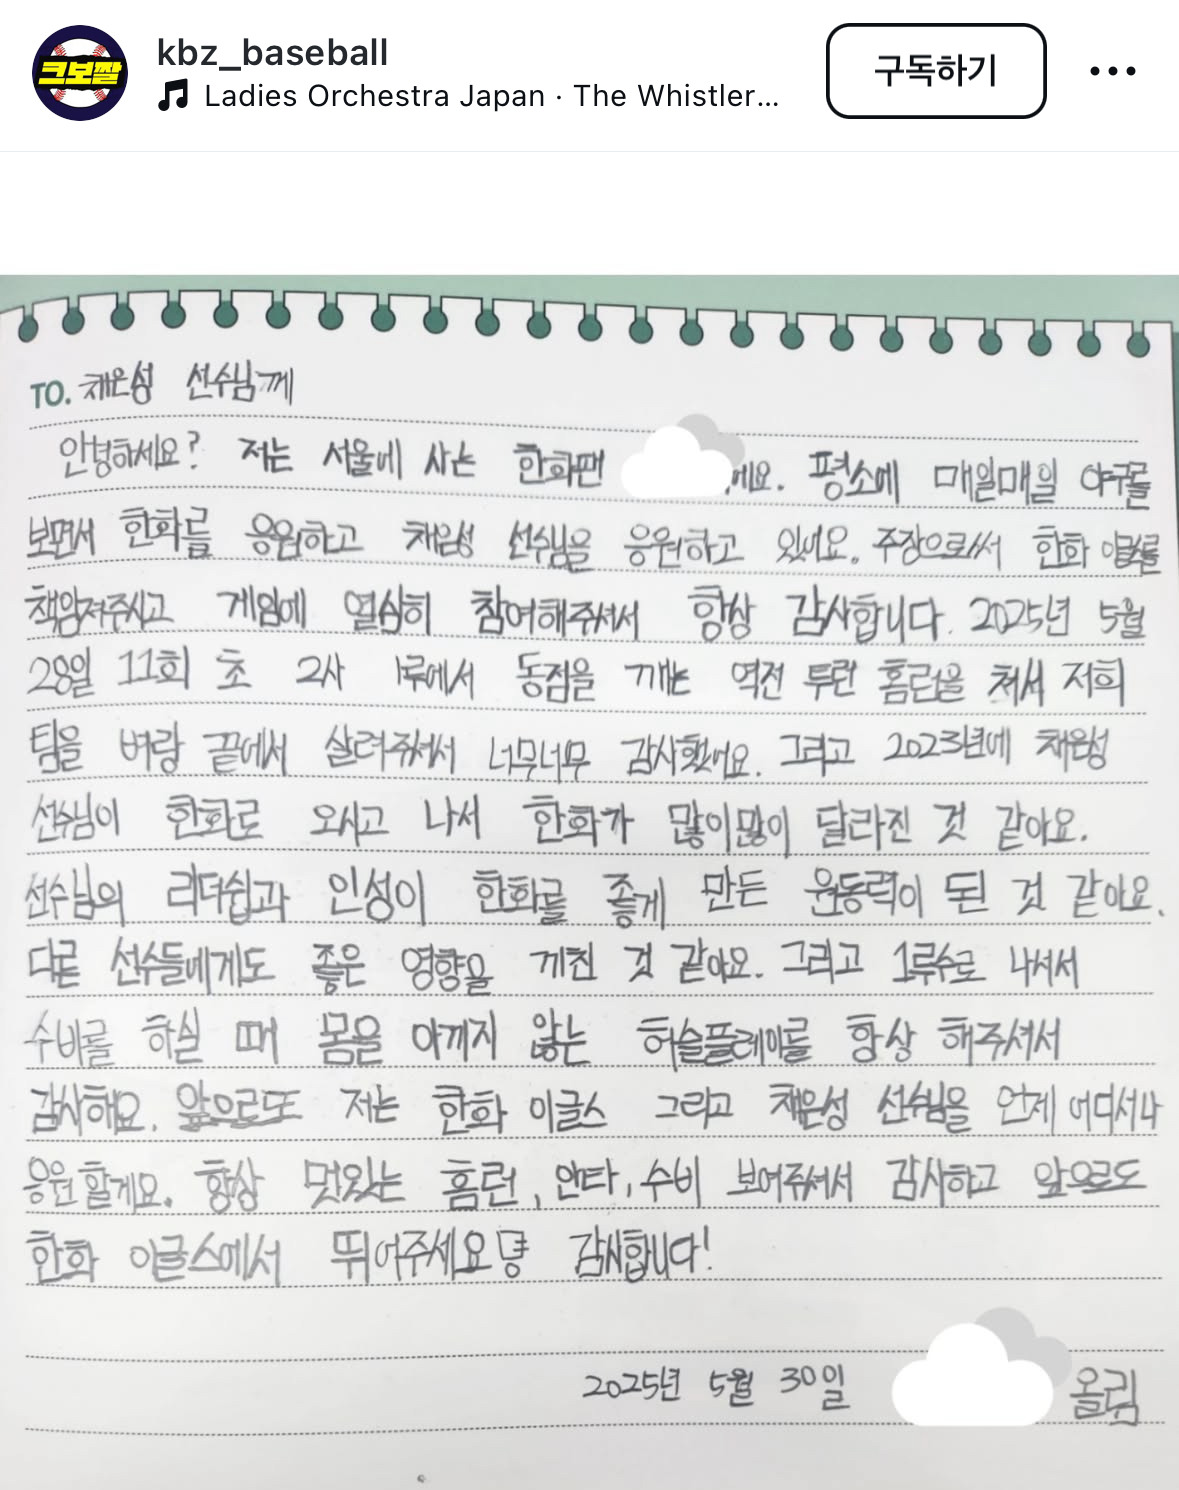 크보짤
kbz_baseball
Ladies Orchestra Japan · The Whistler...
구독하기
TO. 채은성 선수님께
안녕하세요? 저는 서울에 사는 한화팬
에요. 평소에 매일매일 야구를
보면서 한화를 응원하고 채은성 선수님을 응원하고 있어요. 주장으로써 한화 이글스를
책임져주시고 게임에 열심히 참여해주셔서 항상 감사합니다. 2025년 5월
28일 11회 초 2사 1루에서 동점을 깨는 역전 투런 홈런을 쳐서 저희
팀을 벼랑 끝에서 살려주셔서 너무너무 감사했어요. 그리고 2023년에 채은성
선수님이 한화로 오시고 나서 한화가 많이많이 달라진 것 같아요.
선수님의 리더쉽과 인성이 한화를 좋게 만든 원동력이 된 것 같아요.
다른 선수들에게도 좋은 영향을 끼친 것 같아요. 그리고 1루수로 나셔서
수비를 하실 때 몸을 아끼지 않는 허슬플레이를 항상 해주셔서
감사해요. 앞으로도 저는 한화 이글스 그리고 채은성 선수님을 언제 어디서나
응원할게요. 항상 멋있는 홈런, 안타, 수비 보여주셔서 감사하고 앞으로도
한화 이글스에서 뛰어주세요 감사합니다!
2025년 5월 30일
올림